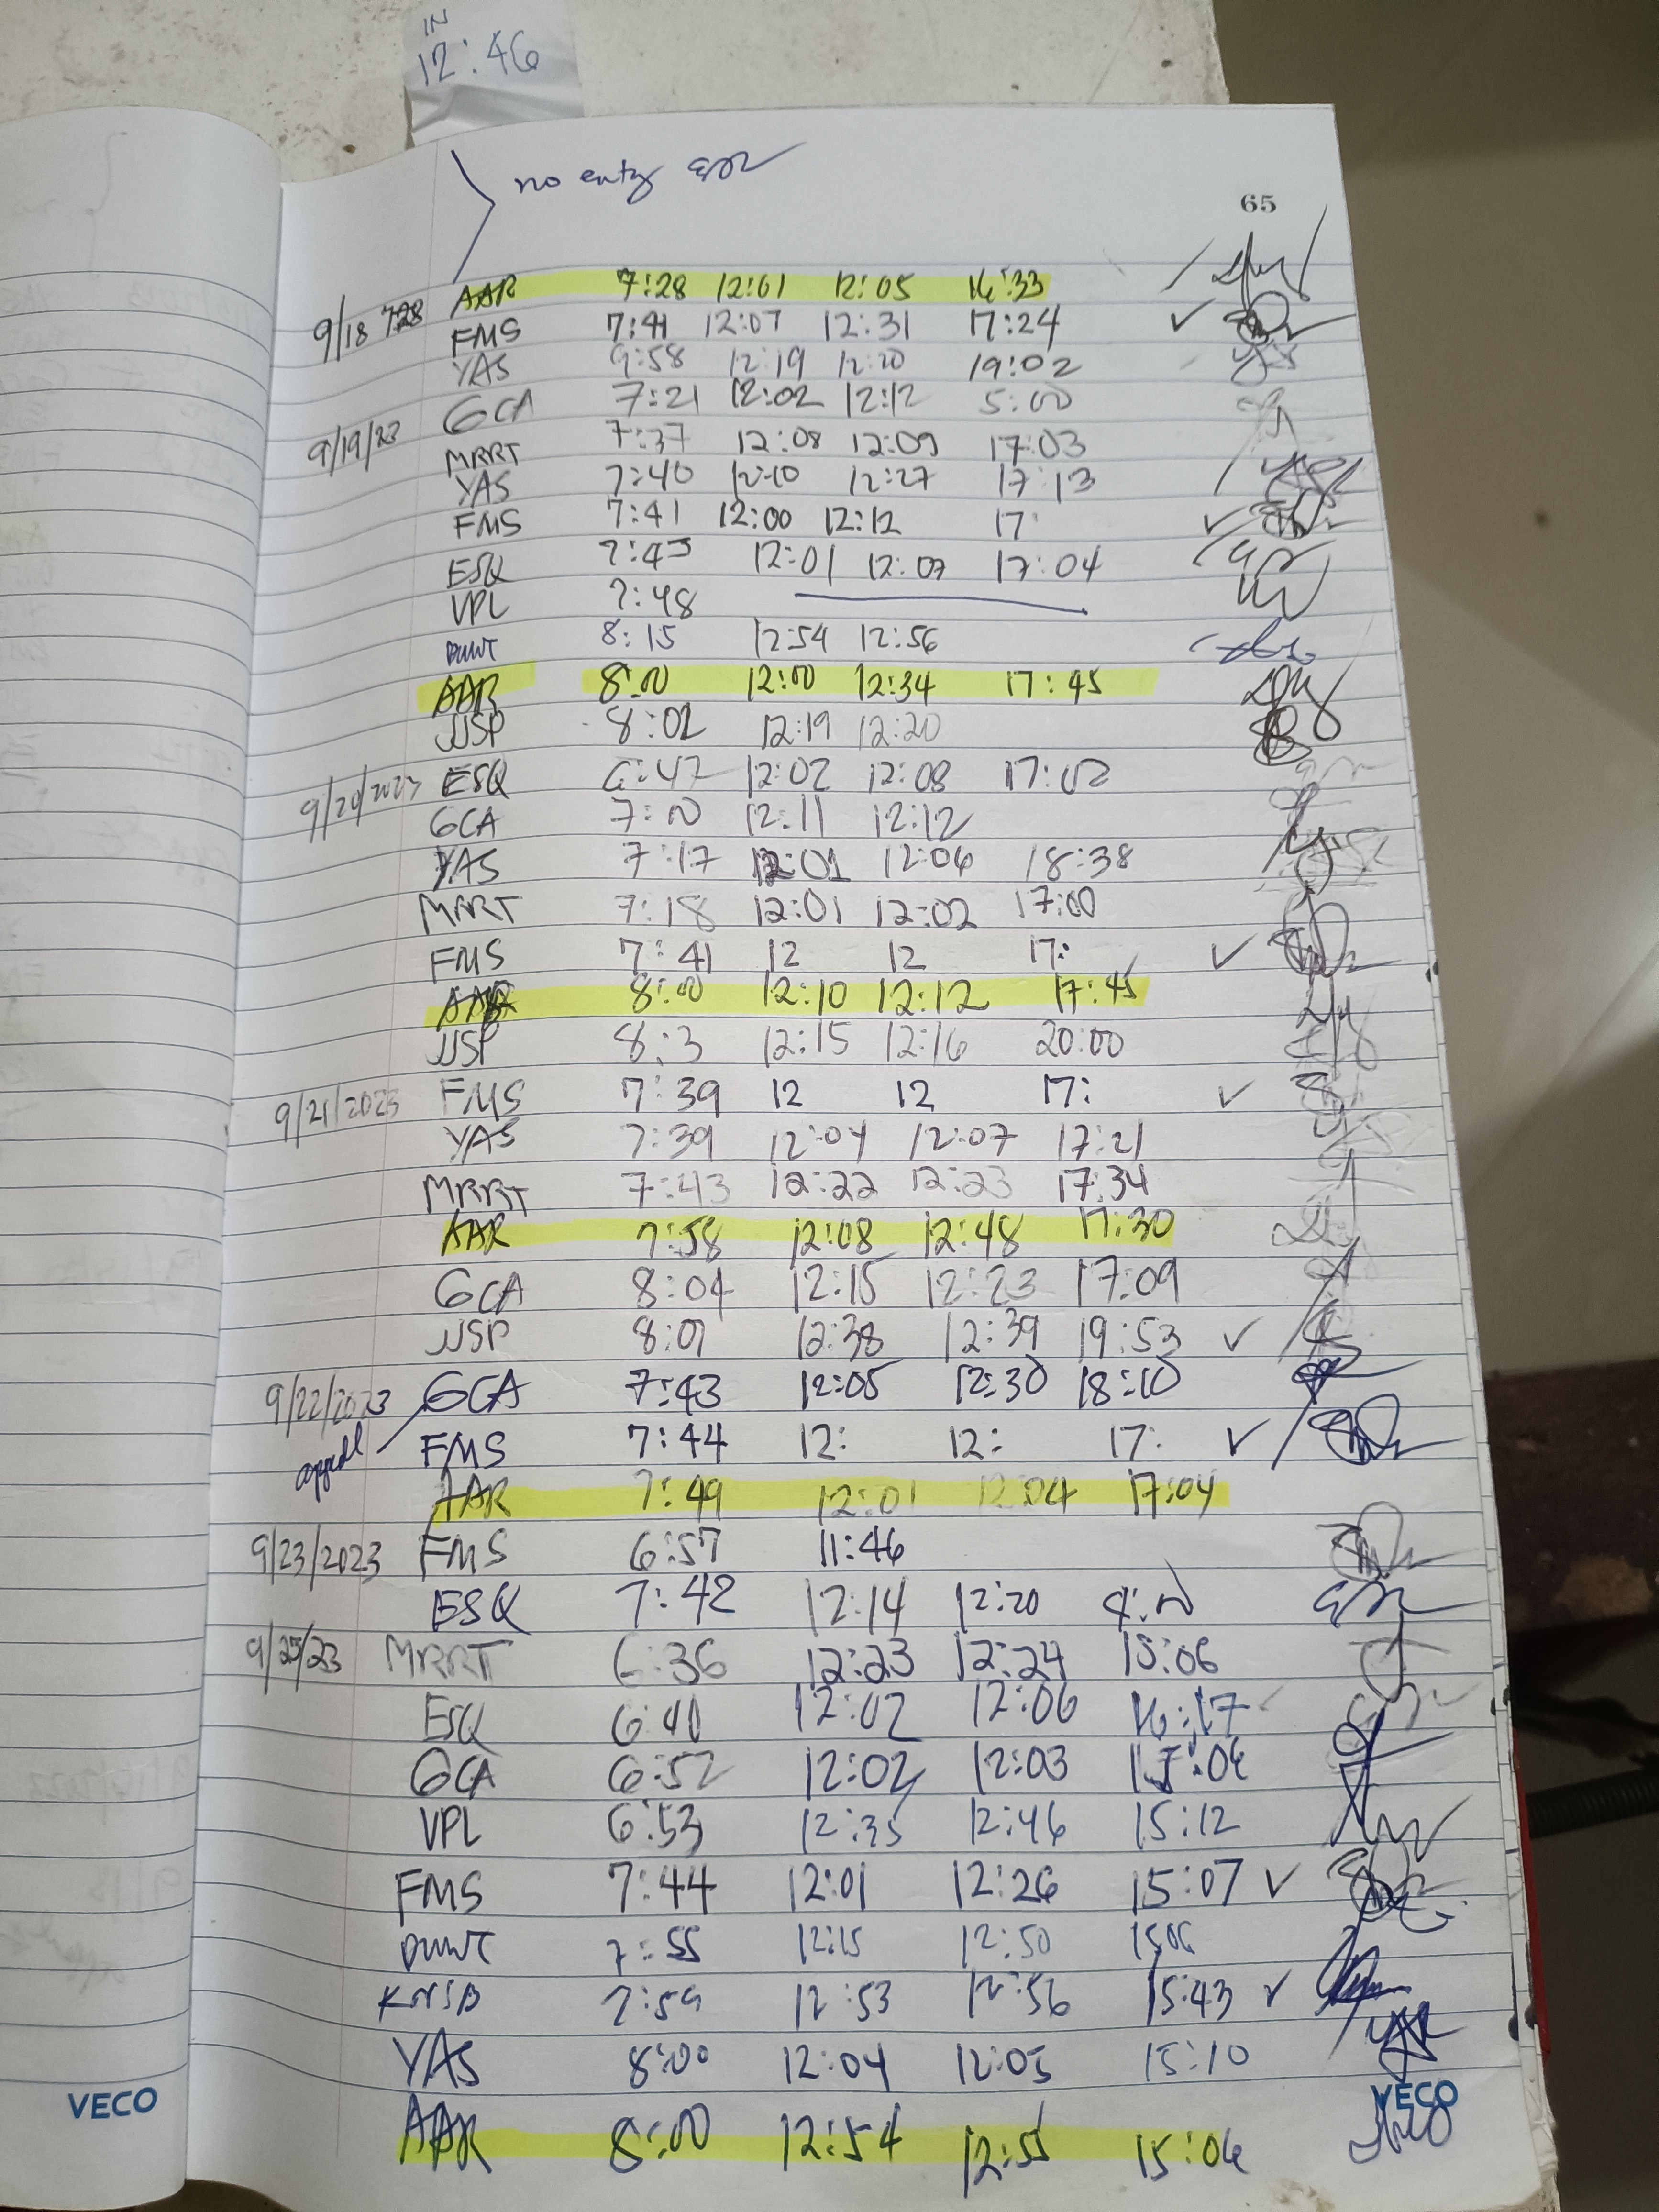 IN
12:46
no entry
65
9/18 7:28 AAR 7:28 12:01 12:05 16:33
FMS 7:41 12:07 12:31 17:24 ✓
YAS 9:58 12:19 12:20 19:02
GCA 7:21 12:02 12:12 5:00
9/19/23 MRRT 7:37 12:08 12:09 17:03
YAS 7:40 12:10 12:27 17:13
FMS 7:41 12:00 12:12 17: ✓
ESQ 7:45 12:01 12:07 17:04
VPL 7:48
8:15 12:54 12:56
AAR 8:00 12:00 12:34 17:45
JJSP 8:02 12:19 12:20
9/20/2023 ESQ 6:47 12:02 12:08 17:02
GCA 7:10 12:11 12:12
YAS 7:17 12:01 12:06 18:38
MRRT 7:18 12:01 12:02 17:00
FMS 7:41 12 12 17: ✓
AAR 8:00 12:10 12:12 17:45
JJSP 8:3 12:15 12:16 20:00
9/21/2023 FMS 7:39 12 12 17: ✓
YAS 7:39 12:04 12:07 17:21
MRRT 7:43 12:22 12:23 17:34
AAR 7:58 12:08 12:48 17:30
GCA 8:04 12:15 12:23 17:09
JJSP 8:07 12:38 12:39 19:53 ✓
9/22/2023 GCA 7:43 12:05 12:30 18:10
FMS 7:44 12: 12: 17: ✓
AAR 7:49 12:01 12:04 17:04
9/23/2023 FMS 6:57 11:46
ESQ 7:42 12:14 12:20 4:00
9/25/23 MRRT 6:36 12:23 12:24 15:06
ESQ 6:40 12:02 12:06 16:17
GCA 6:52 12:02 12:03 15:06
VPL 6:53 12:35 12:46 15:12
FMS 7:44 12:01 12:26 15:07 ✓
7:55 12:15 12:50 1506
KNSB 7:59 12:53 12:56 15:43 ✓
YAS 8:00 12:04 12:05 15:10
VECO
VECO
AAR 8:00 12:54 12:55 15:06